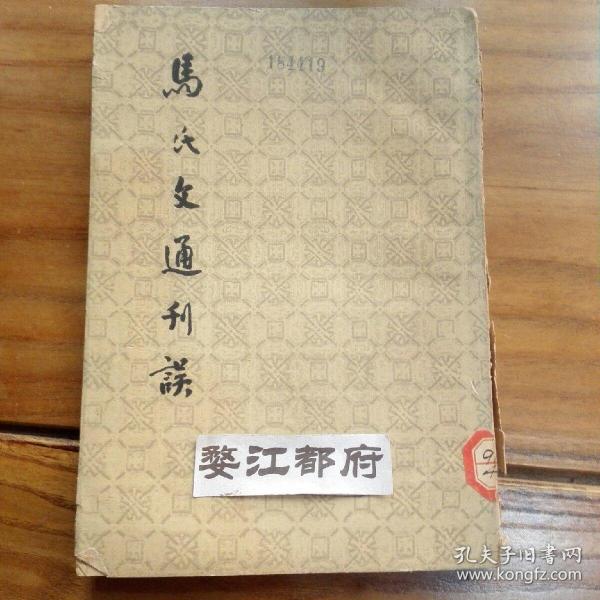 馬氏文通刊誤
184419
婺江都府
9
4
孔夫子旧书网
www.kongfz.com